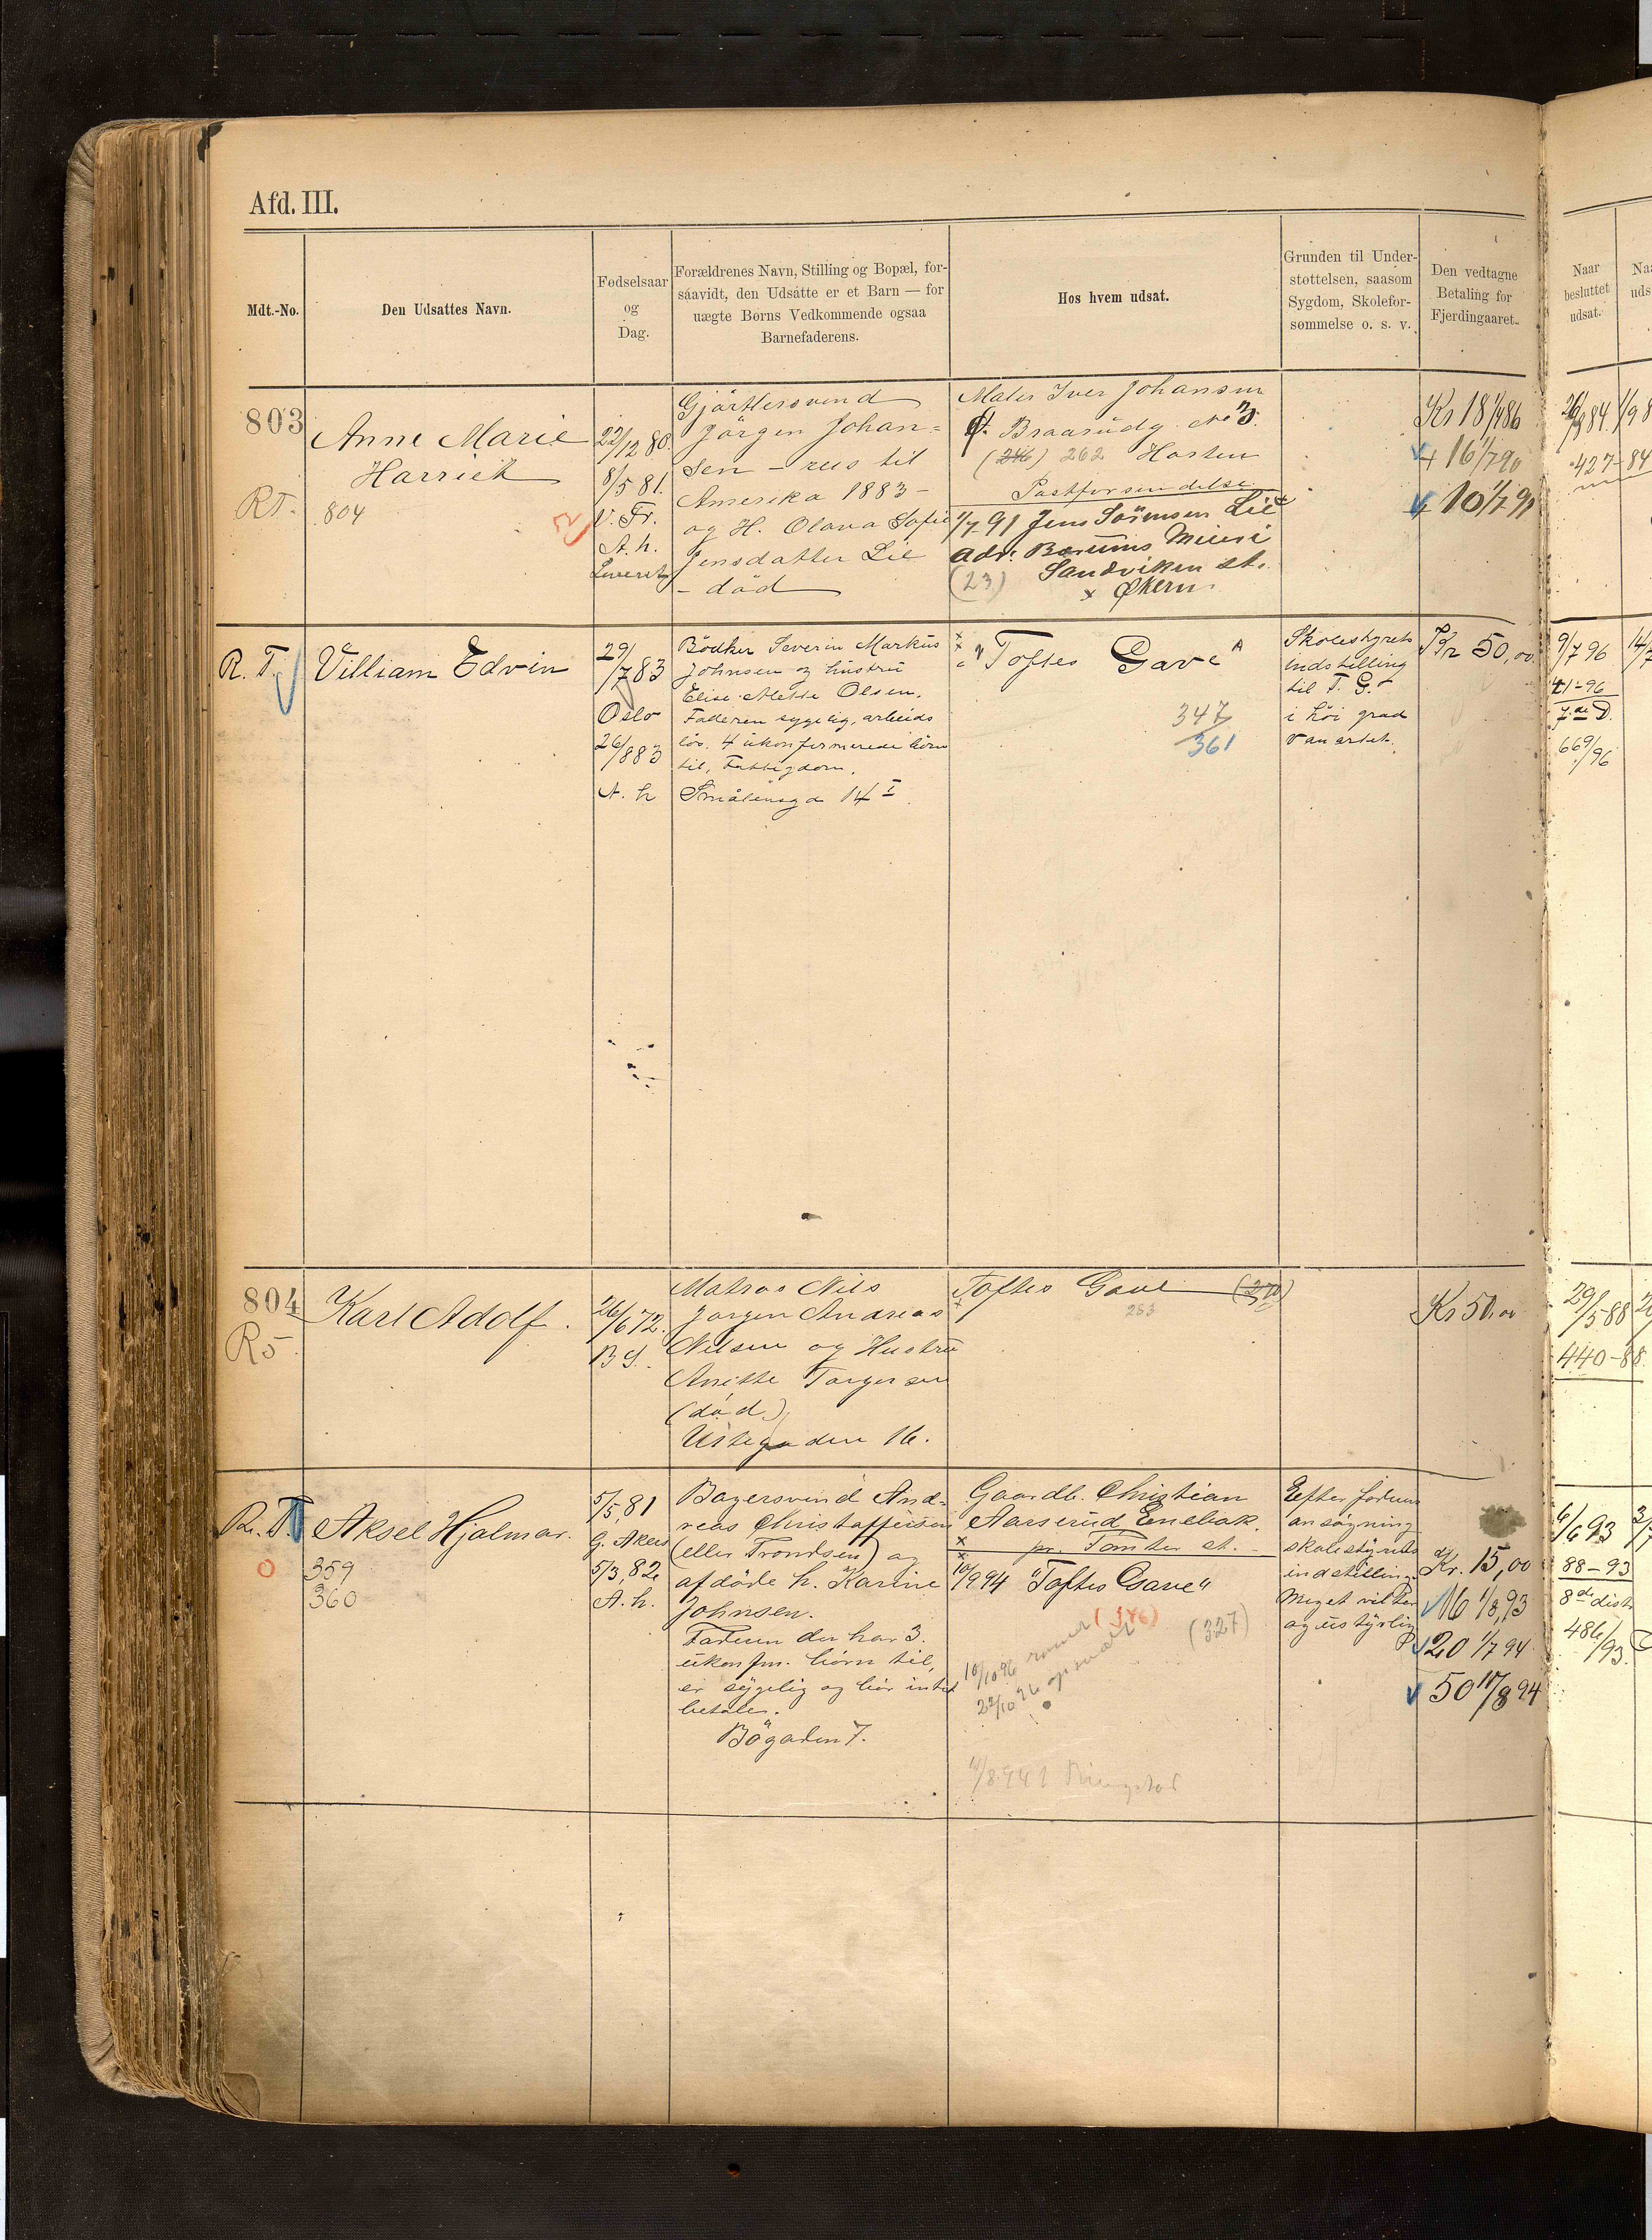 Afd. III.
Mdt.-No.
Den Udsattes Navn.
Fødselsaar
og
Dag.
Forældrenes Navn, Stilling og Bopæl, for-
saavidt, den Udsatte er et Barn — for
uægte Børns Vedkommende ogsaa
Barnefaderens.
Hos hvem udsat.
Grunden til Under-
støttelsen, saasom
Sygdom, Skolefor-
sømmelse o. s. v.
Den vedtagne
Betaling for
Fjerdingaaret.
Naar
besluttet
udsat.
803
Anne Marie
Harriet
RT.
804
22/12 80.
8/5 81.
V. Fr.
A. h.
Gjörtlersvend
Jörgen Johan-
sen - reis til
Amerika 1883 -
og H. Olava Sofie
Jensdatter Lie
- död
Maler Iver Johansen
Braarudg. No
(246) 262 Horten
Postforsendelse
1/7 91 Jens Sörensen Lie
adr. Bærums
Sandviken st.
(23) x Økern
Kr 18 1/4 86
+ 16 1/7 90
10 1/7 91
427-84
R. T.
Villiam Edvin
29/7 83
Oslo
26/8 83
A. h
Bödker Severin Markus
Johnsen og hustru
Elise Mette Olsen.
Faderen sygelig, arbeids
lös. 4 ukonfirmerede börn
til, Fattigdom.
Smålensgd 14 I
"Toftes Gave"
347
361
Skolestyrets
indstilling
til T. G.
i höi grad
vanartet.
Kr 50,00
9/7 96
41-96
7de D.
669/96
804
R5.
Karl Adolf.
26/6 72.
B S.
Matros Nils
Jörgen Andreas
Nilsen og Hustru
Anette Torgersen
(död)
Urtegaden 16.
Toftes Gave (270)
253
Kr 50.00
29/5 88
440-88.
R. T.
Aksel Hjalmar.
359
360
5/5, 81
G. Akers
5/3, 82
A. h.
Bagersvend And-
reas Christoffersen
(eller Trondsen) og
afdöde h. Karine
Johnsen.
Faderen der har 3
ukonfm. börn til,
er sygelig og bör intet
betale.
Bögaden 7.
Gaardb. Christian
Aarserud Enebak.
pr. Tomter st.
10/9 94 "Toftes Gave"
(346)
(327)
10/10 96 rømmet
22/10 96
Efter faderens
ansögning
skolestyrets
indstilling
Meget vilter
og ustyrlig
Kr. 15,00
16 1/8, 93
20 1/7 94
50 10/8 94
6/6 93
88-93
8de distr
486/93.